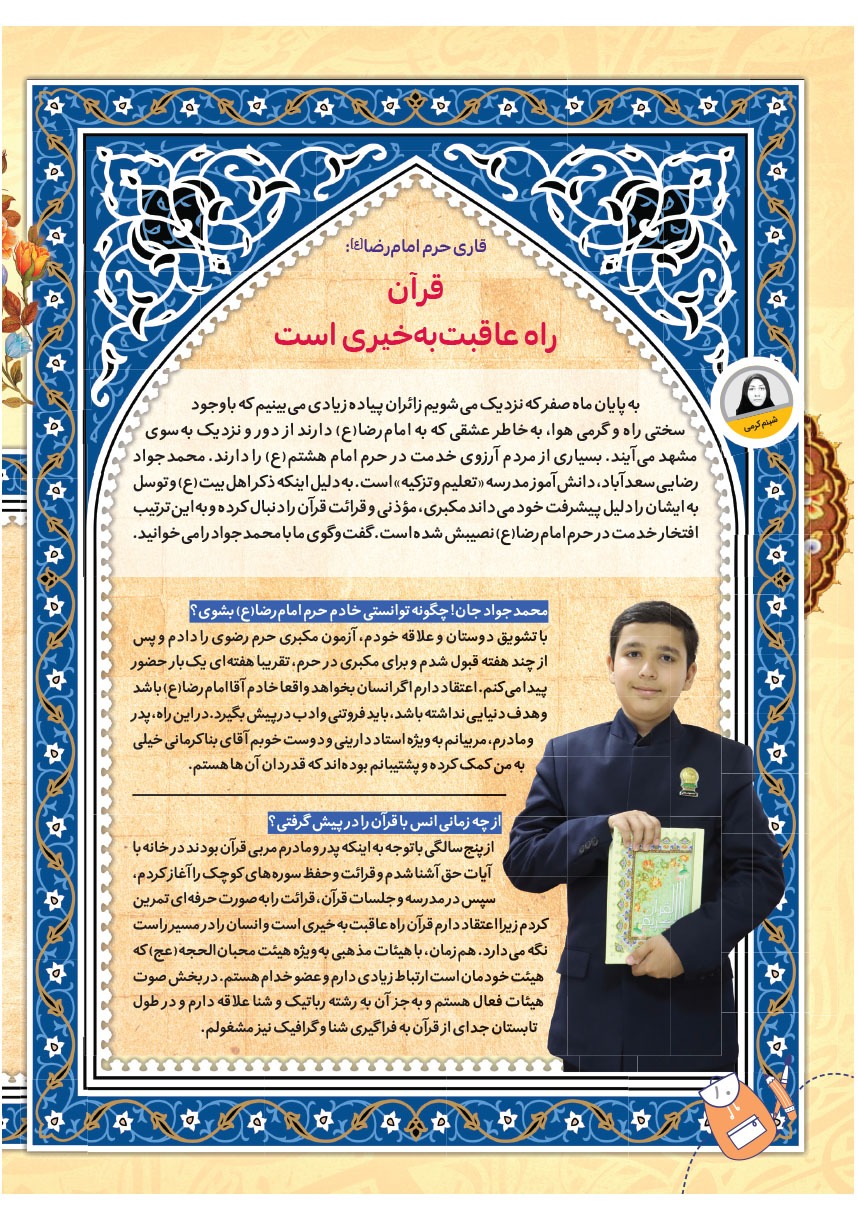 قاری حرم امام‌رضا(ع):
قرآن
راه عاقبت‌به‌خیری است
شبنم کرمی
به پایان ماه صفر که نزدیک می‌شویم زائران پیاده زیادی می‌بینیم که با وجود
سختی راه و گرمی هوا، به خاطر عشقی که به امام رضا(ع) دارند از دور و نزدیک به سوی
مشهد می‌آیند. بسیاری از مردم آرزوی خدمت در حرم امام هشتم(ع) را دارند. محمدجواد
رضایی سعدآباد، دانش‌آموز مدرسه «تعلیم و تزکیه» است. به دلیل اینکه ذکر اهل بیت(ع) و توسل
به ایشان را دلیل پیشرفت خود می‌داند مکبری، مؤذنی و قرائت قرآن را دنبال کرده و به این ترتیب
افتخار خدمت در حرم امام رضا(ع) نصیبش شده است. گفت‌وگوی ما با محمدجواد را می‌خوانید.
محمدجواد جان! چگونه توانستی خادم حرم امام رضا(ع) بشوی؟
با تشویق دوستان و علاقه خودم، آزمون مکبری حرم رضوی را دادم و پس
از چند هفته قبول شدم و برای مکبری در حرم، تقریبا هفته‌ای یک‌بار حضور
پیدا می‌کنم. اعتقاد دارم اگر انسان بخواهد واقعا خادم آقا امام رضا(ع) باشد
و هدف دنیایی نداشته باشد، باید فروتنی و ادب در پیش بگیرد. در این راه، پدر
و مادرم، مربیانم به ویژه استاد دارینی و دوست خوبم آقای بناکرمانی خیلی
به من کمک کرده و پشتیبانم بوده‌اند که قدردان آن‌ها هستم.
از چه زمانی انس با قرآن را در پیش گرفتی؟
از پنج سالگی با توجه به اینکه پدر و مادرم مربی قرآن بودند در خانه با
آیات حق آشنا شدم و قرائت و حفظ سوره‌های کوچک را آغاز کردم،
سپس در مدرسه و جلسات قرآن، قرائت را به صورت حرفه‌ای تمرین
کردم زیرا اعتقاد دارم قرآن راه عاقبت به خیری است و انسان را در مسیر راست
نگه می‌دارد. هم‌زمان، با هیئات مذهبی به ویژه هیئت محبان الحجه(عج) که
هیئت خودمان است ارتباط زیادی دارم و عضو خدام هستم. در بخش صوت
هیئات فعال هستم و به جز آن به رشته رباتیک و شنا علاقه دارم و در طول
تابستان جدای از قرآن به فراگیری شنا و گرافیک نیز مشغولم.
۱۰